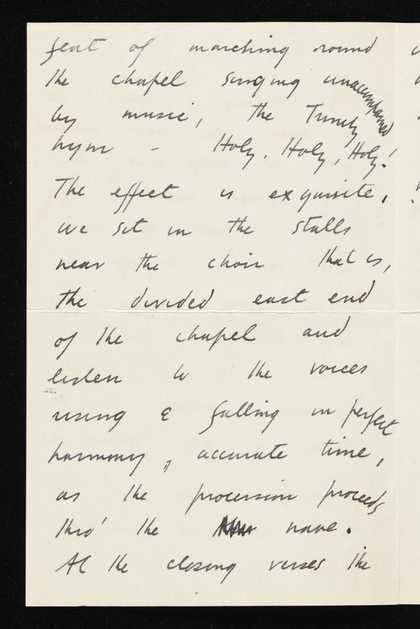 feat of marching round
the chapel singing unaccompanied
by music, the Trinity
hymn - Holy. Holy, Holy!
The effect is exquisite.
we sit in the stalls
near the choir that is,
the divided east end
of the chapel and
listen to the voices
rising & falling in perfect
harmony, accurate time,
as the procession proceeds
thro' the nave.
At the closing verses the